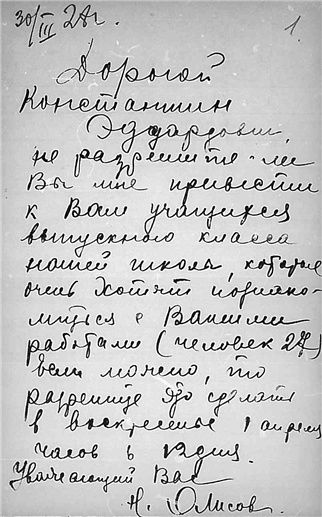 30/III 28 г.
1.
Дорогой
Константин
Эдуардович,
не разрешите ли
Вы мне привести
к Вам учащихся
выпускного класса
нашей школы, которые
очень хотят познако-
миться с Вашими
работами (человек 27)
если можно, то
разрешите это сделать
в воскресенье 1 апреля
часов в 12 дня.
Уважающий Вас
Н.